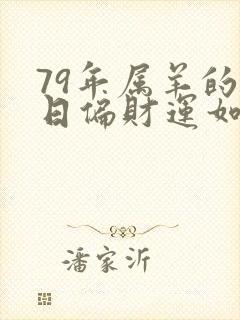 79年属羊的
日偏财运如
潘家沂